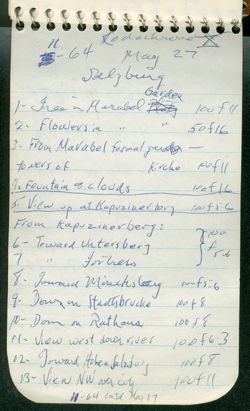 Kodachrome X
11-64 May 27
Salzburg
Garden
1- Trees in Marabel 100 f 11
2- Flowers in " " 50 f 16
3- From Marabel formal garden —
towers of Kirche 100 f 11
4. Fountain & clouds 100 f 16
5. View up at Kapuzinerberg 100 f 5.6
From Kapuzinerberg:
6- Toward Untersberg } 100
7 " fortress f 5.6
8- Toward Mönchsberg f 5.6
9- Down on Staatsbrucke 100 f 8
10- Down on Rathaus 100 f 8
11- View west down river 100 f 6.3
12- Toward Hohensalzburg 100 f 8
13- View NW over city 100 f 11
11-64 cont May 27